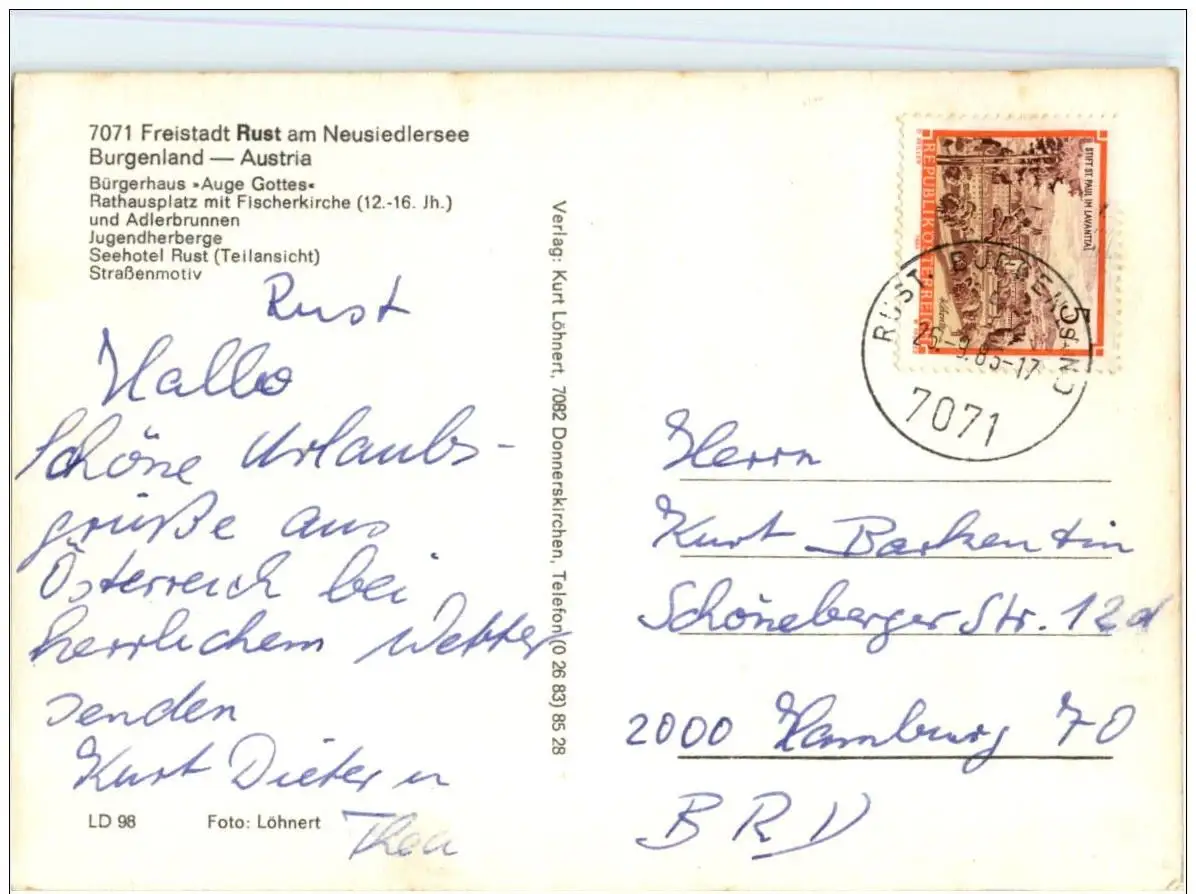 7071 Freistadt Rust am Neusiedlersee
Burgenland — Austria
Bürgerhaus »Auge Gottes«
Rathausplatz mit Fischerkirche (12.-16. Jh.)
und Adlerbrunnen
Jugendherberge
Seehotel Rust (Teilansicht)
Straßenmotiv
Rust
Hallo
Schöne Urlaubs-
grüße aus
Österreich bei
herrlichem Wetter
senden
Kurt Dieter u
Thea
LD 98 Foto: Löhnert
Verlag: Kurt Löhnert, 7082 Donnerskirchen, Telefon (0 26 83) 85 28
STIFT ST. PAUL IM LAVANTTAL
REPUBLIK ÖSTERREICH
5 S
RUST, BURGENLAND
26.-9.85-17
7071
Herrn
Kurt Barkentin
Schöneberger Str. 12d
2000 Hamburg 70
BRD